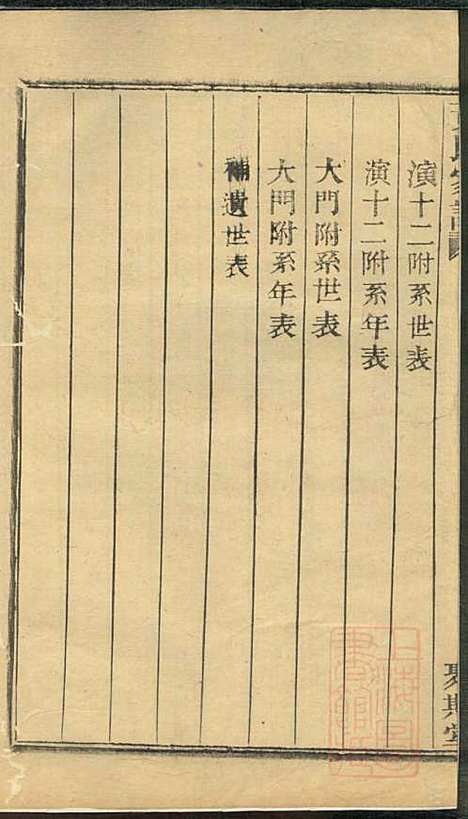 演十二附系世表
演十二附系年表
大門附系世表
大門附系年表
補遺世表
聚斯堂